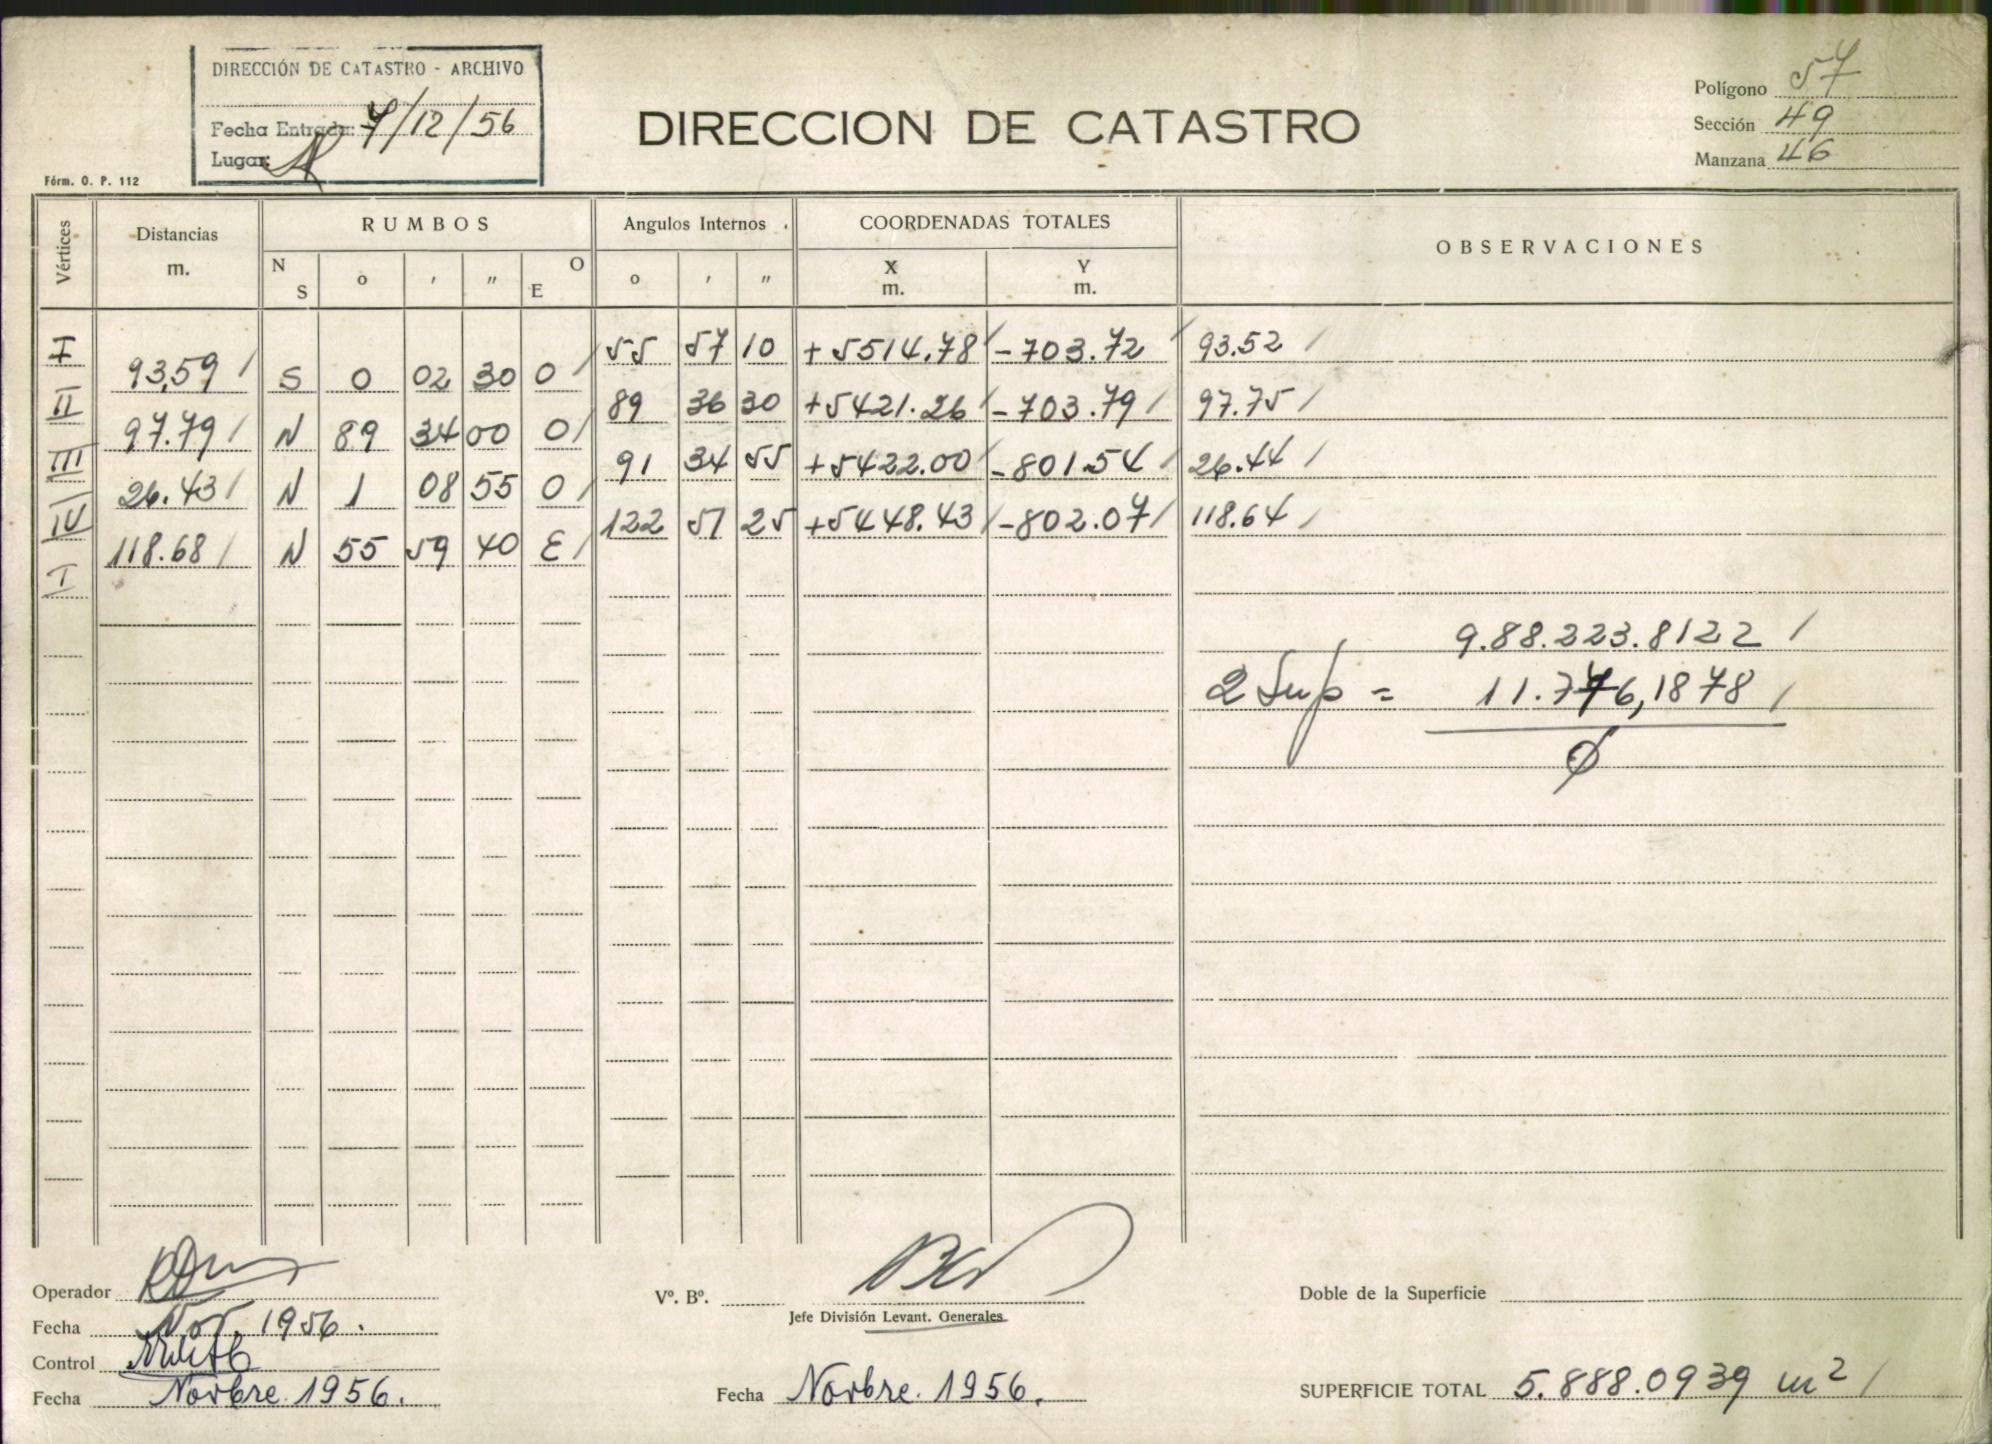 DIRECCIÓN DE CATASTRO - ARCHIVO
Fecha Entrada: 7/12/56
Lugar:
Fórm. O. P. 112
DIRECCION DE CATASTRO
Polígono 57
Sección 49
Manzana 46
Vértices Distancias m. RUMBOS Angulos Internos COORDENADAS TOTALES OBSERVACIONES
N S o ' " O E o ' " X m. Y m.
I 55 57 10 +5514.78 -703.72 93.52
93,59 S 0 02 30 O
II 89 36 30 +5421.26 -703.79 97.75
97.79 N 89 34 00 O
III 91 34 55 +5422.00 -801.54 26.44
26.43 N 1 08 55 O
IV 122 51 25 +5448.43 -802.07 118.64
118.68 N 55 59 40 E
I
9.88.223.8122
2 Sup = 11.776,1878
0
Operador
Fecha Nov. 1956.
Control
Fecha Novbre. 1956.
Vº. Bº.
Jefe División Levant. Generales
Fecha Novbre. 1956.
Doble de la Superficie
SUPERFICIE TOTAL 5.888.0939 m²